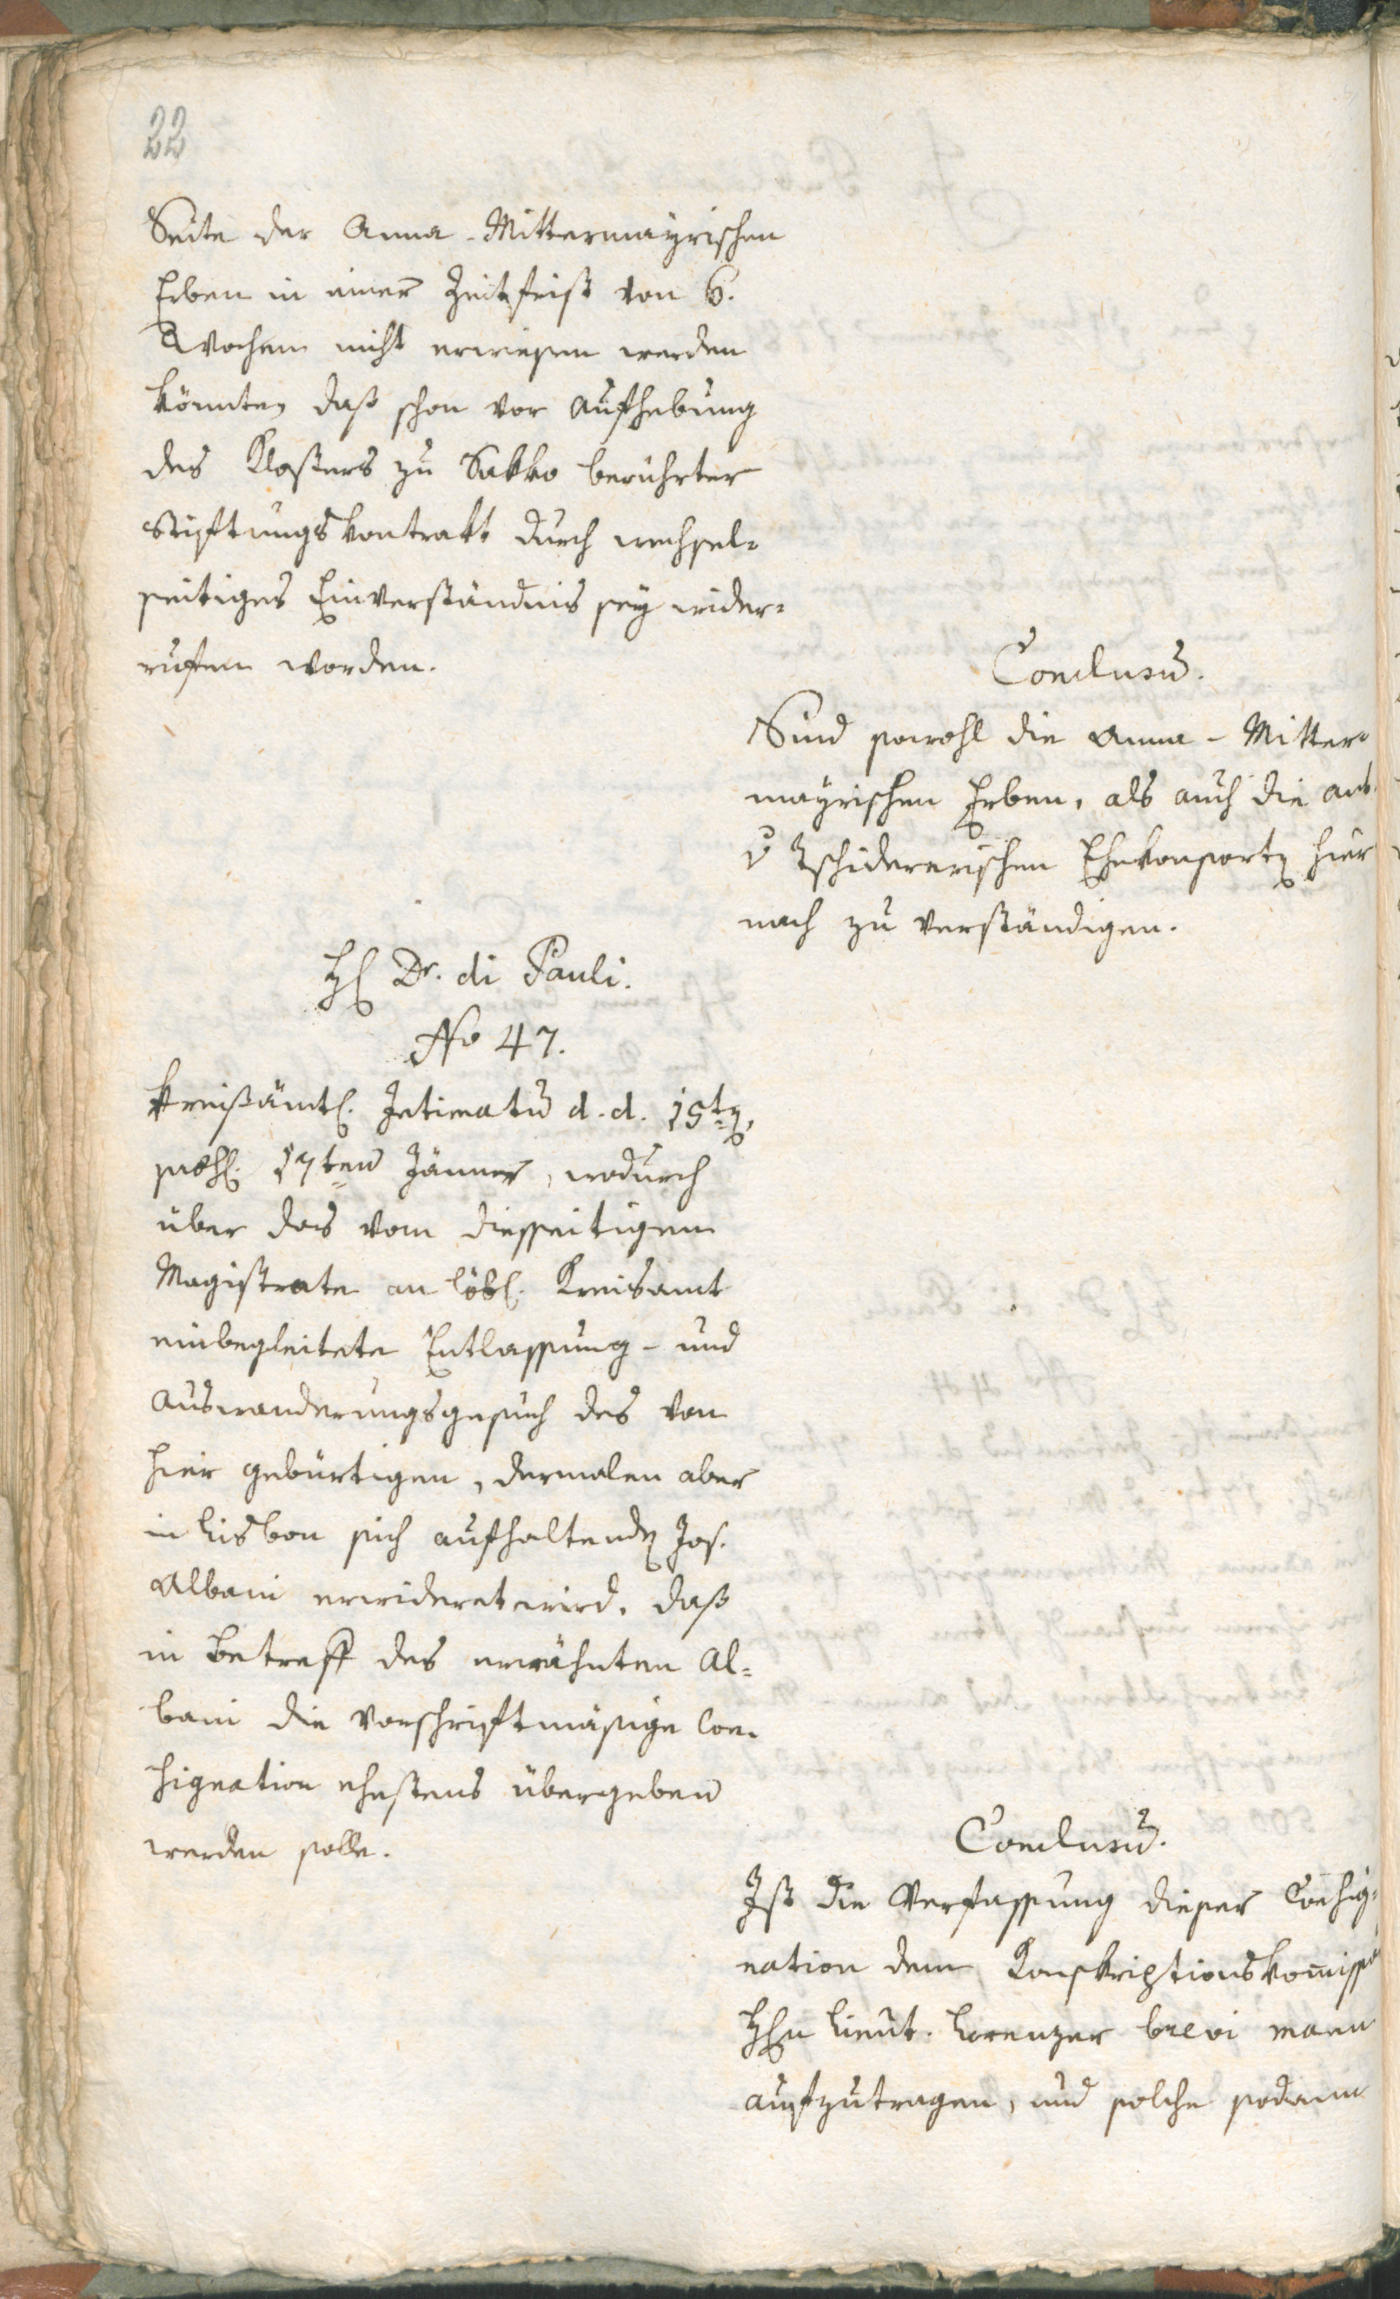 22
Seite der Anna-Mittermayrischen
Erben in einer Zeitfrist von 6.
Wochen nicht erwiesen werden
könnte, daß schon vor Aufhebung
des Klosters zu Sakko berührter
Stiftungskontrakt durch wechsel-
seitiges Einverständnis sey wider-
rufen worden.
Conclusum.
Sind sowohl die Anna-Mitter-
mayrischen Erben, als auch die ant.
v Tschidererischen Ehekonsorten hier
nach zu verständigen.
H. Dr. di Pauli.
No 47.
Kreisämtl. Intimatum d. d. 15ten,
præs. 17ten Jänner, wodurch
über das vom diesseitigen
Magistrate an löbl. Kreisamt
einbegleitete Entlassung- und
Auswanderungsgesuch des von
hier gebürtigen, dermalen aber
in Lisbon sich aufhaltenden Jos.
Albani erwideret wird, daß
in Betreff des erwähnten Al-
bani die vorschriftmäsige Con-
signation ehestens übergeben
werden solle.
Conclusum.
Ist die Verfassung dieser Consig-
nation dem Konskriptionskommiss
Hn Lieut. Lorenzer brevi manu
aufzutragen, und solche sodann